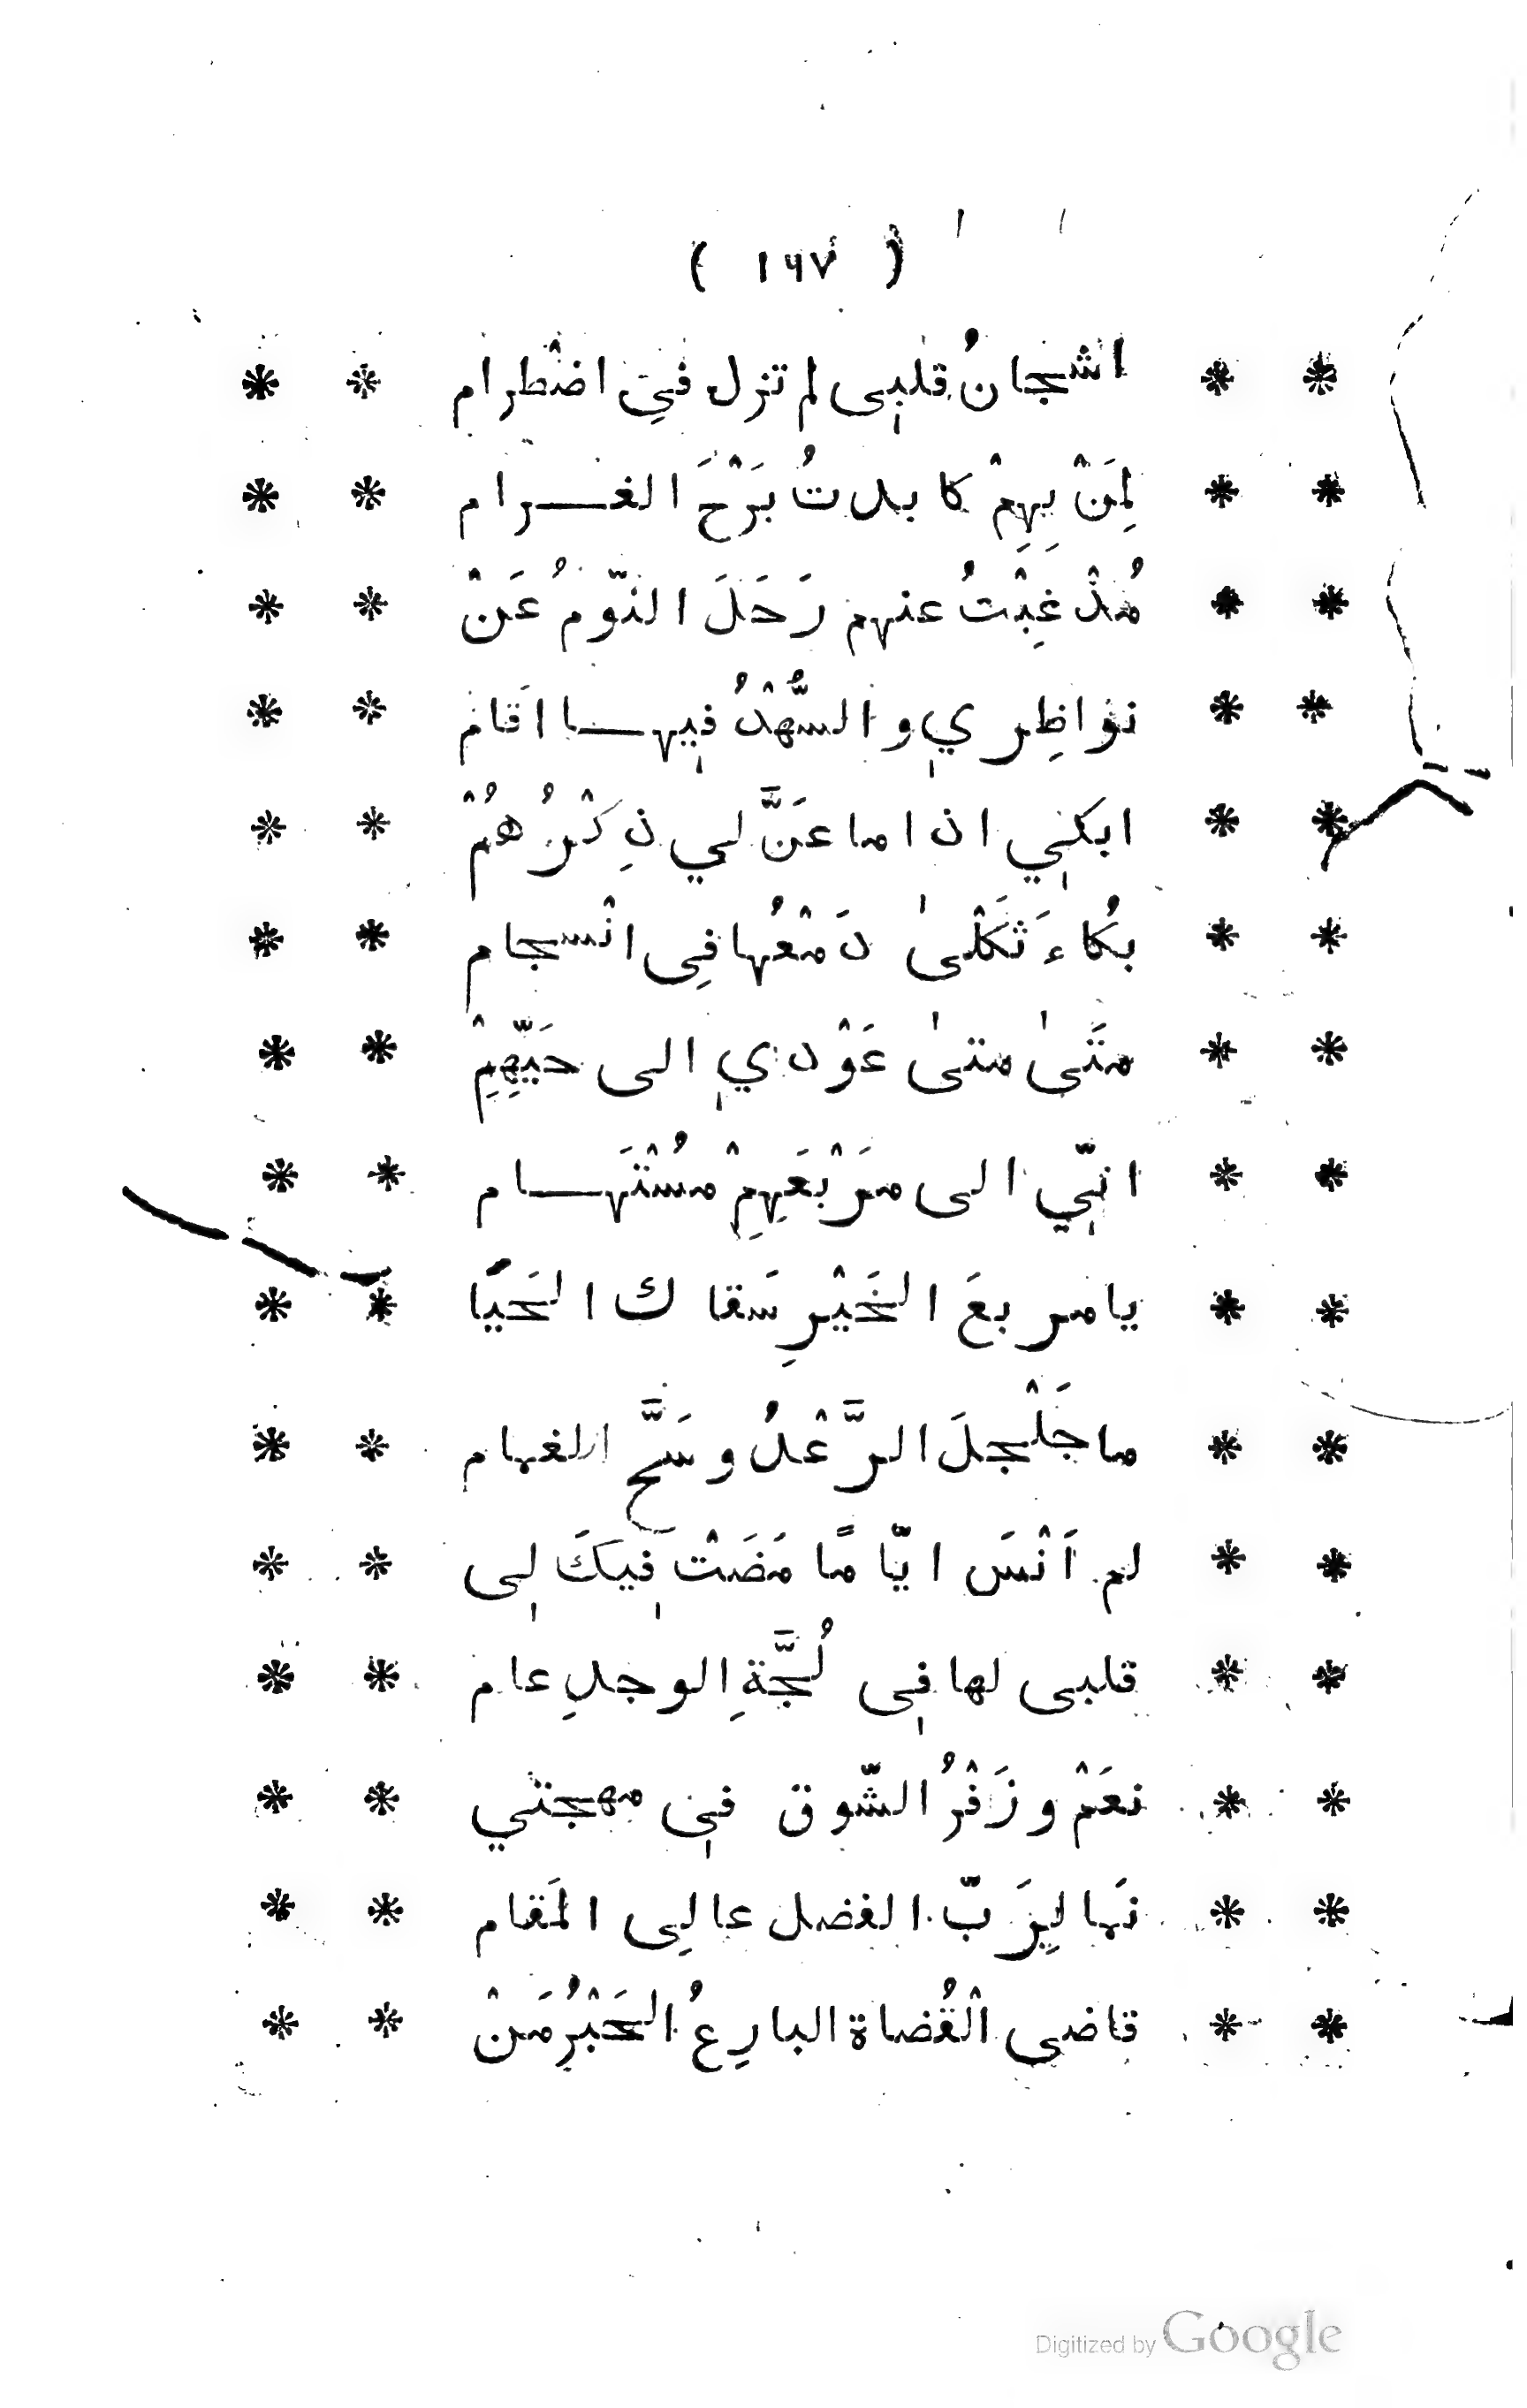 ( ١٦٧ )
* * اشجانُ قلبِى لم تزل في اضْطرام * *
* * لِمَنْ بِهِمْ كابدتُ بَرْحَ الغــرام * *
* * مُذْ غِبْتُ عنهم رَحَلَ النّومُ عَنْ * *
* * نواظِرِي والسُّهْدُ فِيهـا اقام * *
* * ابكِي اذا ما عَنَّ لي ذِكْرُهُمْ * *
* * بُكاءَ ثَكْلىٰ دَمْعُها فِى انْسجام * *
* * متَىٰ متىٰ عَوْدِي الى حَيِّهِمْ * *
* * انِّي الى مَرْبَعِهِمْ مُسْتَهـام * *
* * يا مربعَ الخَيْرِ سَقاك الحَيَا * *
* * ما جَلْجلَ الرَّعْدُ وسَحَّ الغمام * *
* * لم اَنْسَ ايّامًا مَضَتْ فِيكَ لِى * *
* * قلبى لها فِى لُجَّةِ الوجدِ عام * *
* * نعَمْ وزَفْرُ الشّوق فِى مهجتي * *
* * نَما لِرَبّ الفضل عالِى المَقام * *
* * قاضى الْقُضاة البارِعُ الحَبْرُ مَنْ * *
Digitized by Google